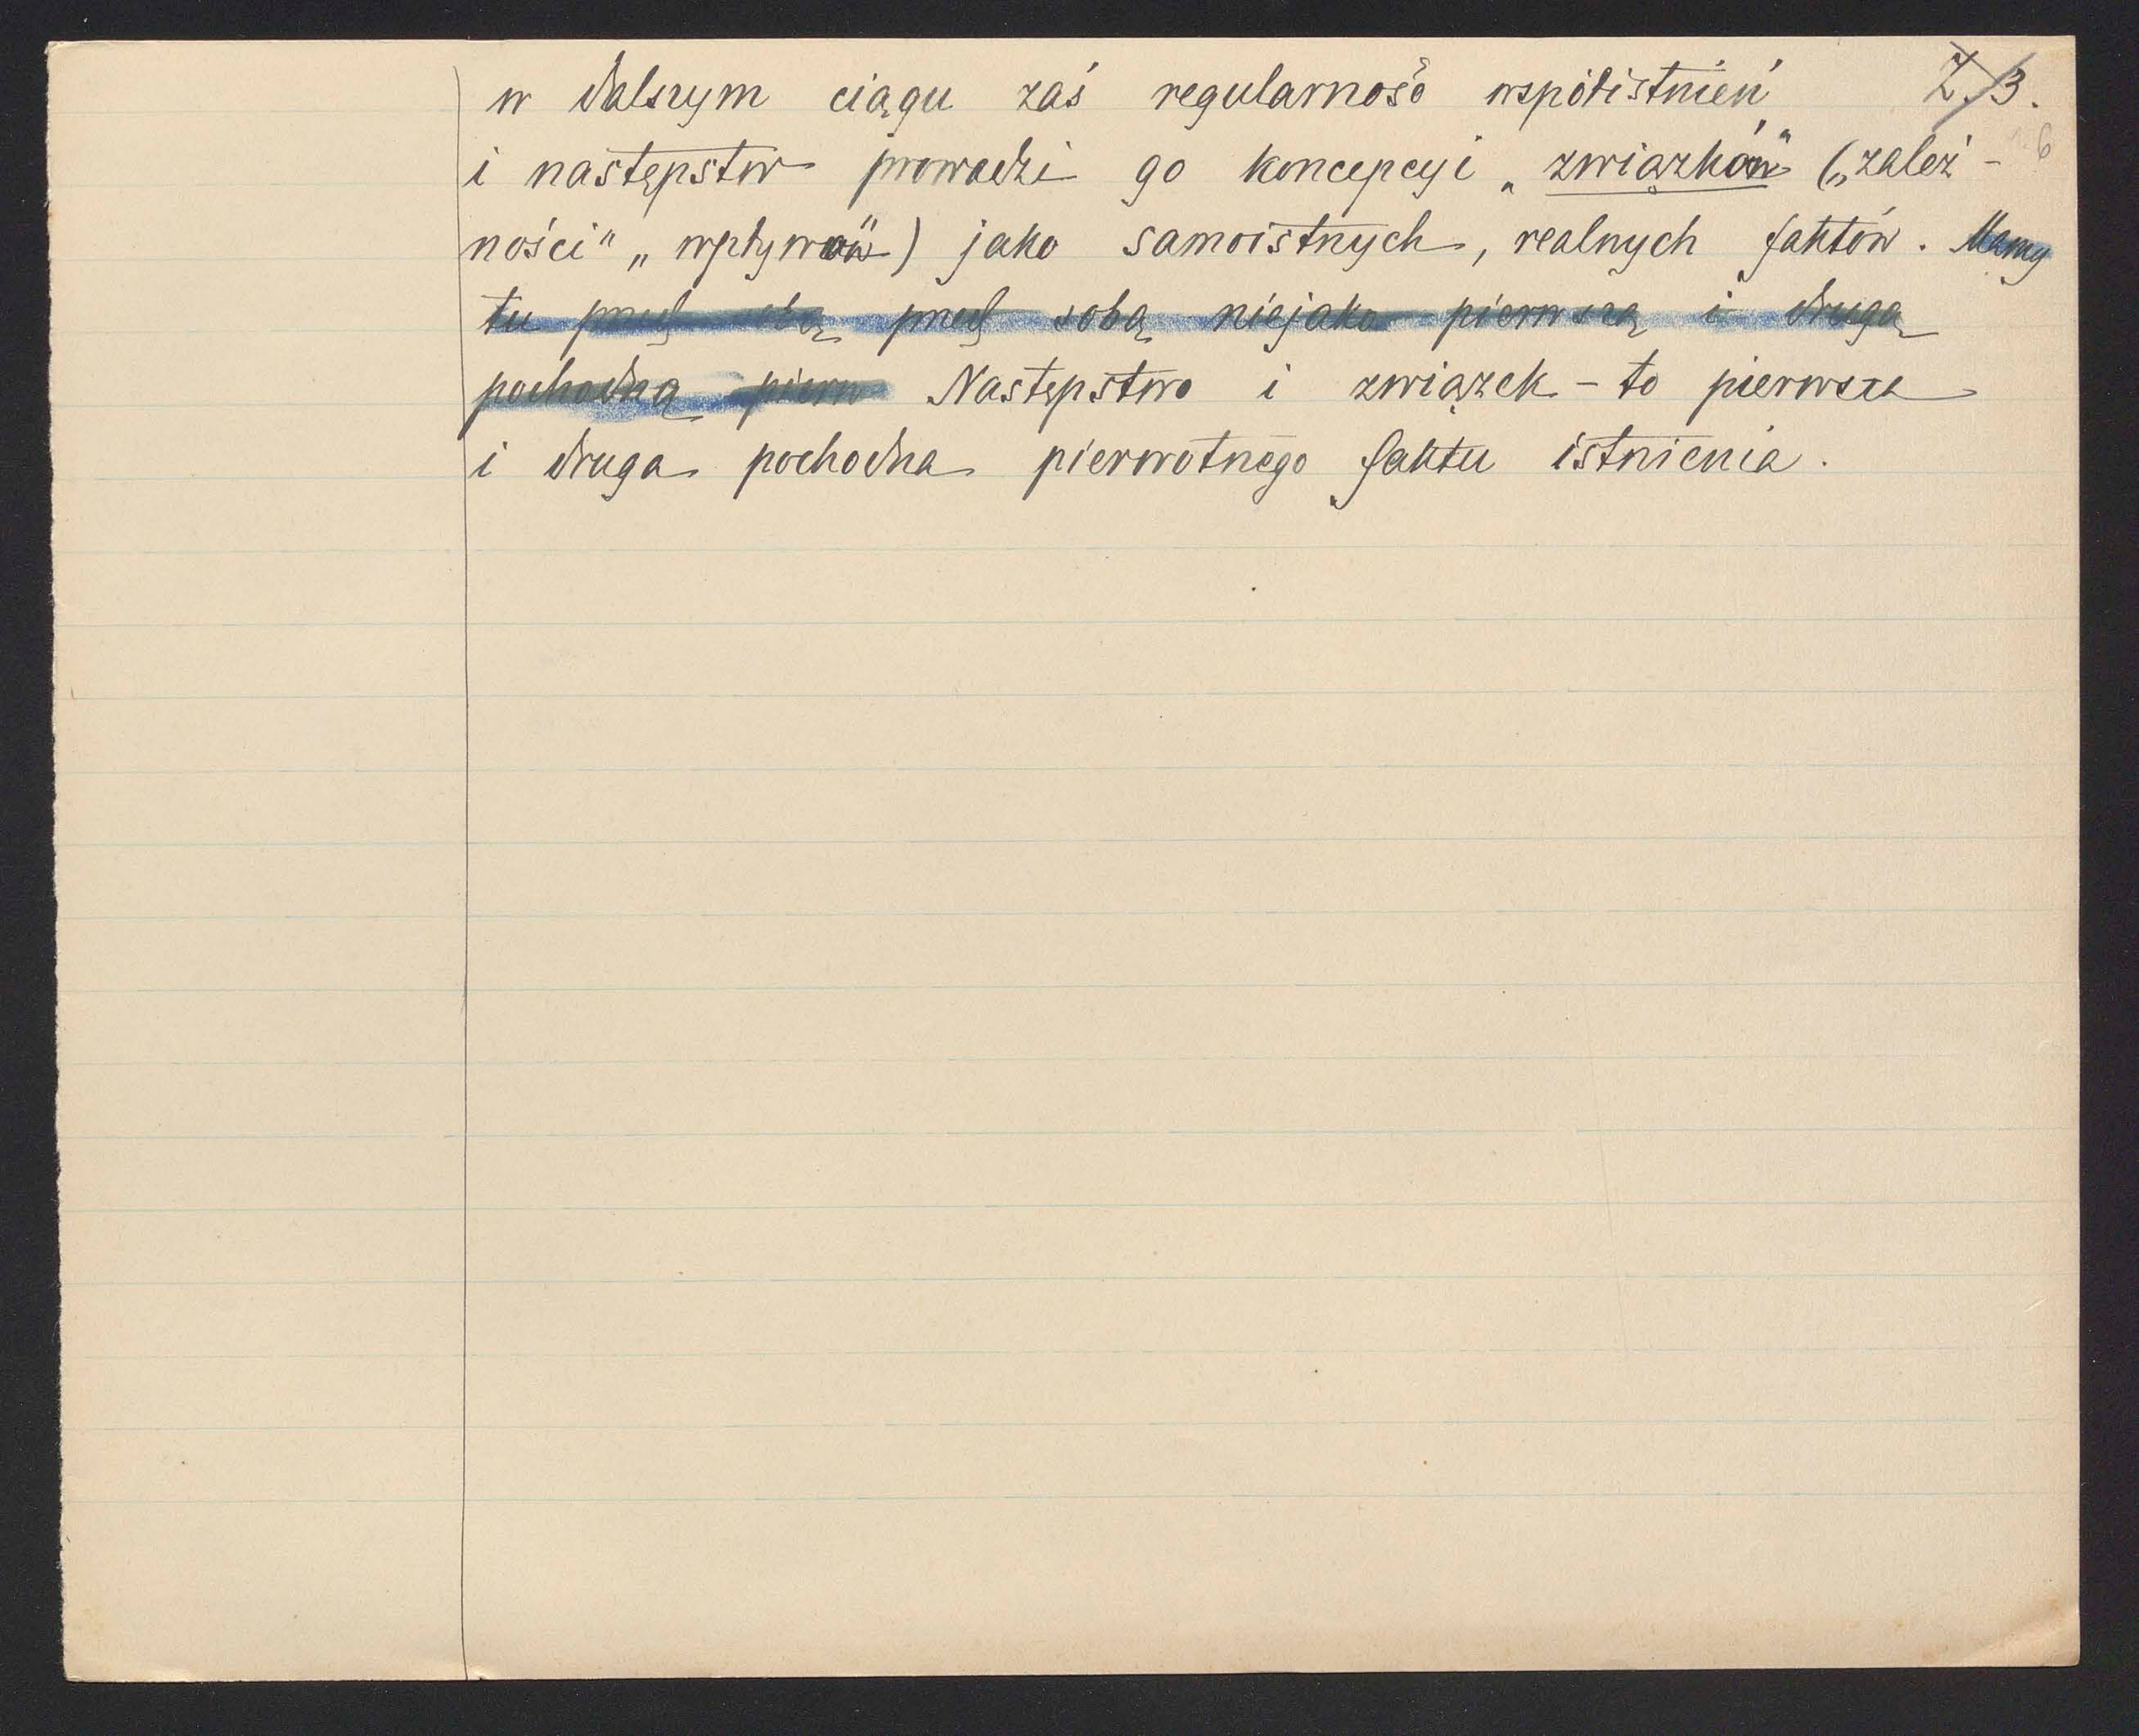 w dalszym ciągu zaś regularność współistnień 3.
i następstw prowadzi go koncepcyi „związków" („zależ- 6
ności" „wpływów") jako samoistnych, realnych faktów. Mamy
tu przed sobą przed sobą niejako pierwszą i drugą
pochodną pierw Następstwo i związek - to pierwsza
i druga pochodna pierwotnego faktu istnienia.